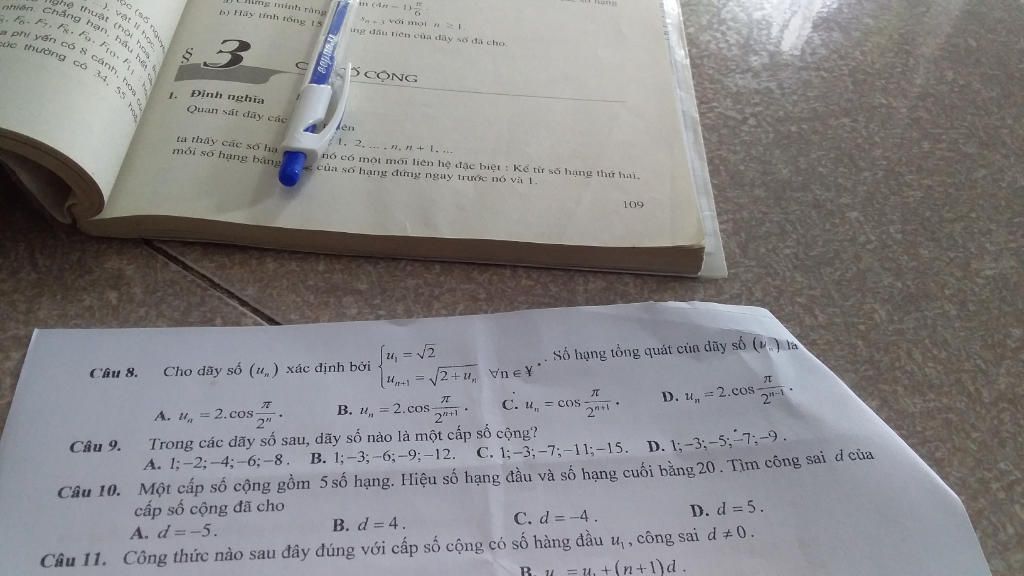 nghệ thuật (hội họa
nhiên. Chẳng hạn, hầu hết
a phi yến có 8 cánh, hoa
cúc thường có 34, 55 hoặ
a) Chứng minh rằng
(4n − 1) π/6
b) Hãy tính tổng 15
với mọi n ≥ 1.
đầu tiên của dãy số đã cho.
§ 3
SỐ CỘNG
1. Định nghĩa
Quan sát dãy các
1, 2, ... , n, n + 1, ...
ta thấy các số hạ
nó có một mối liên hệ đặc biệt : Kể từ số hạng thứ hai,
mỗi số hạng bằng
của số hạng đứng ngay trước nó và 1.
109
Câu 8. Cho dãy số (uₙ) xác định bởi {u₁ = √2; uₙ₊₁ = √(2 + uₙ) ∀n ∈ ¥*. Số hạng tổng quát của dãy số (uₙ) là
A. uₙ = 2.cos π/2ⁿ. B. uₙ = 2.cos π/2ⁿ⁺¹. C. uₙ = cos π/2ⁿ⁺¹. D. uₙ = 2.cos π/2ⁿ⁻¹.
Câu 9. Trong các dãy số sau, dãy số nào là một cấp số cộng?
A. 1;−2;−4;−6;−8. B. 1;−3;−6;−9;−12. C. 1;−3;−7;−11;−15. D. 1;−3;−5;−7;−9.
Câu 10. Một cấp số cộng gồm 5 số hạng. Hiệu số hạng đầu và số hạng cuối bằng 20. Tìm công sai d của
cấp số cộng đã cho
A. d = −5. B. d = 4. C. d = −4. D. d = 5.
Câu 11. Công thức nào sau đây đúng với cấp số cộng có số hàng đầu u₁, công sai d ≠ 0.
B. uₙ = u₁ + (n+1)d.